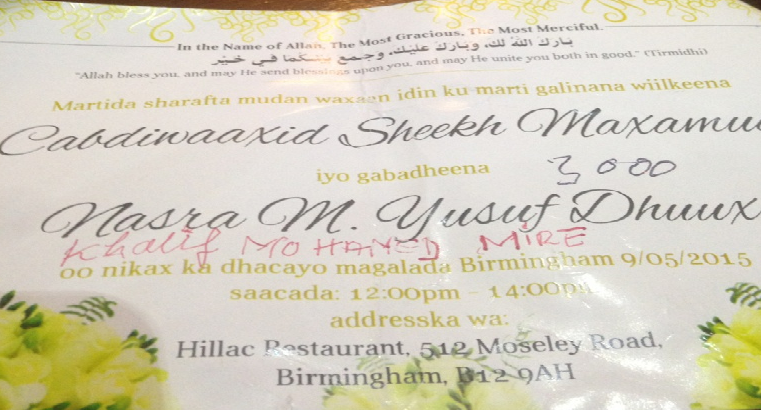 In the Name of Allah, The Most Gracious, The Most Merciful.
بارك الله لك، وبارك عليك، وجمع بينكما في خير
"Allah bless you, and may He send blessings upon you, and may He unite you both in good." (Tirmidhi)
Martida sharafta mudan waxaan idin ku marti galinana wiilkeena
Cabdiwaaxid Sheekh Maxamuu
iyo gabadheena 3,000
Nasra M. Yusuf Dhuux
Khalif MOHAMED MIRE
oo nikax ka dhacayo magalada Birmingham 9/05/2015
saacada: 12:00pm - 14:00pm
addresska wa:
Hillac Restaurant, 512 Moseley Road,
Birmingham, B12 9AH